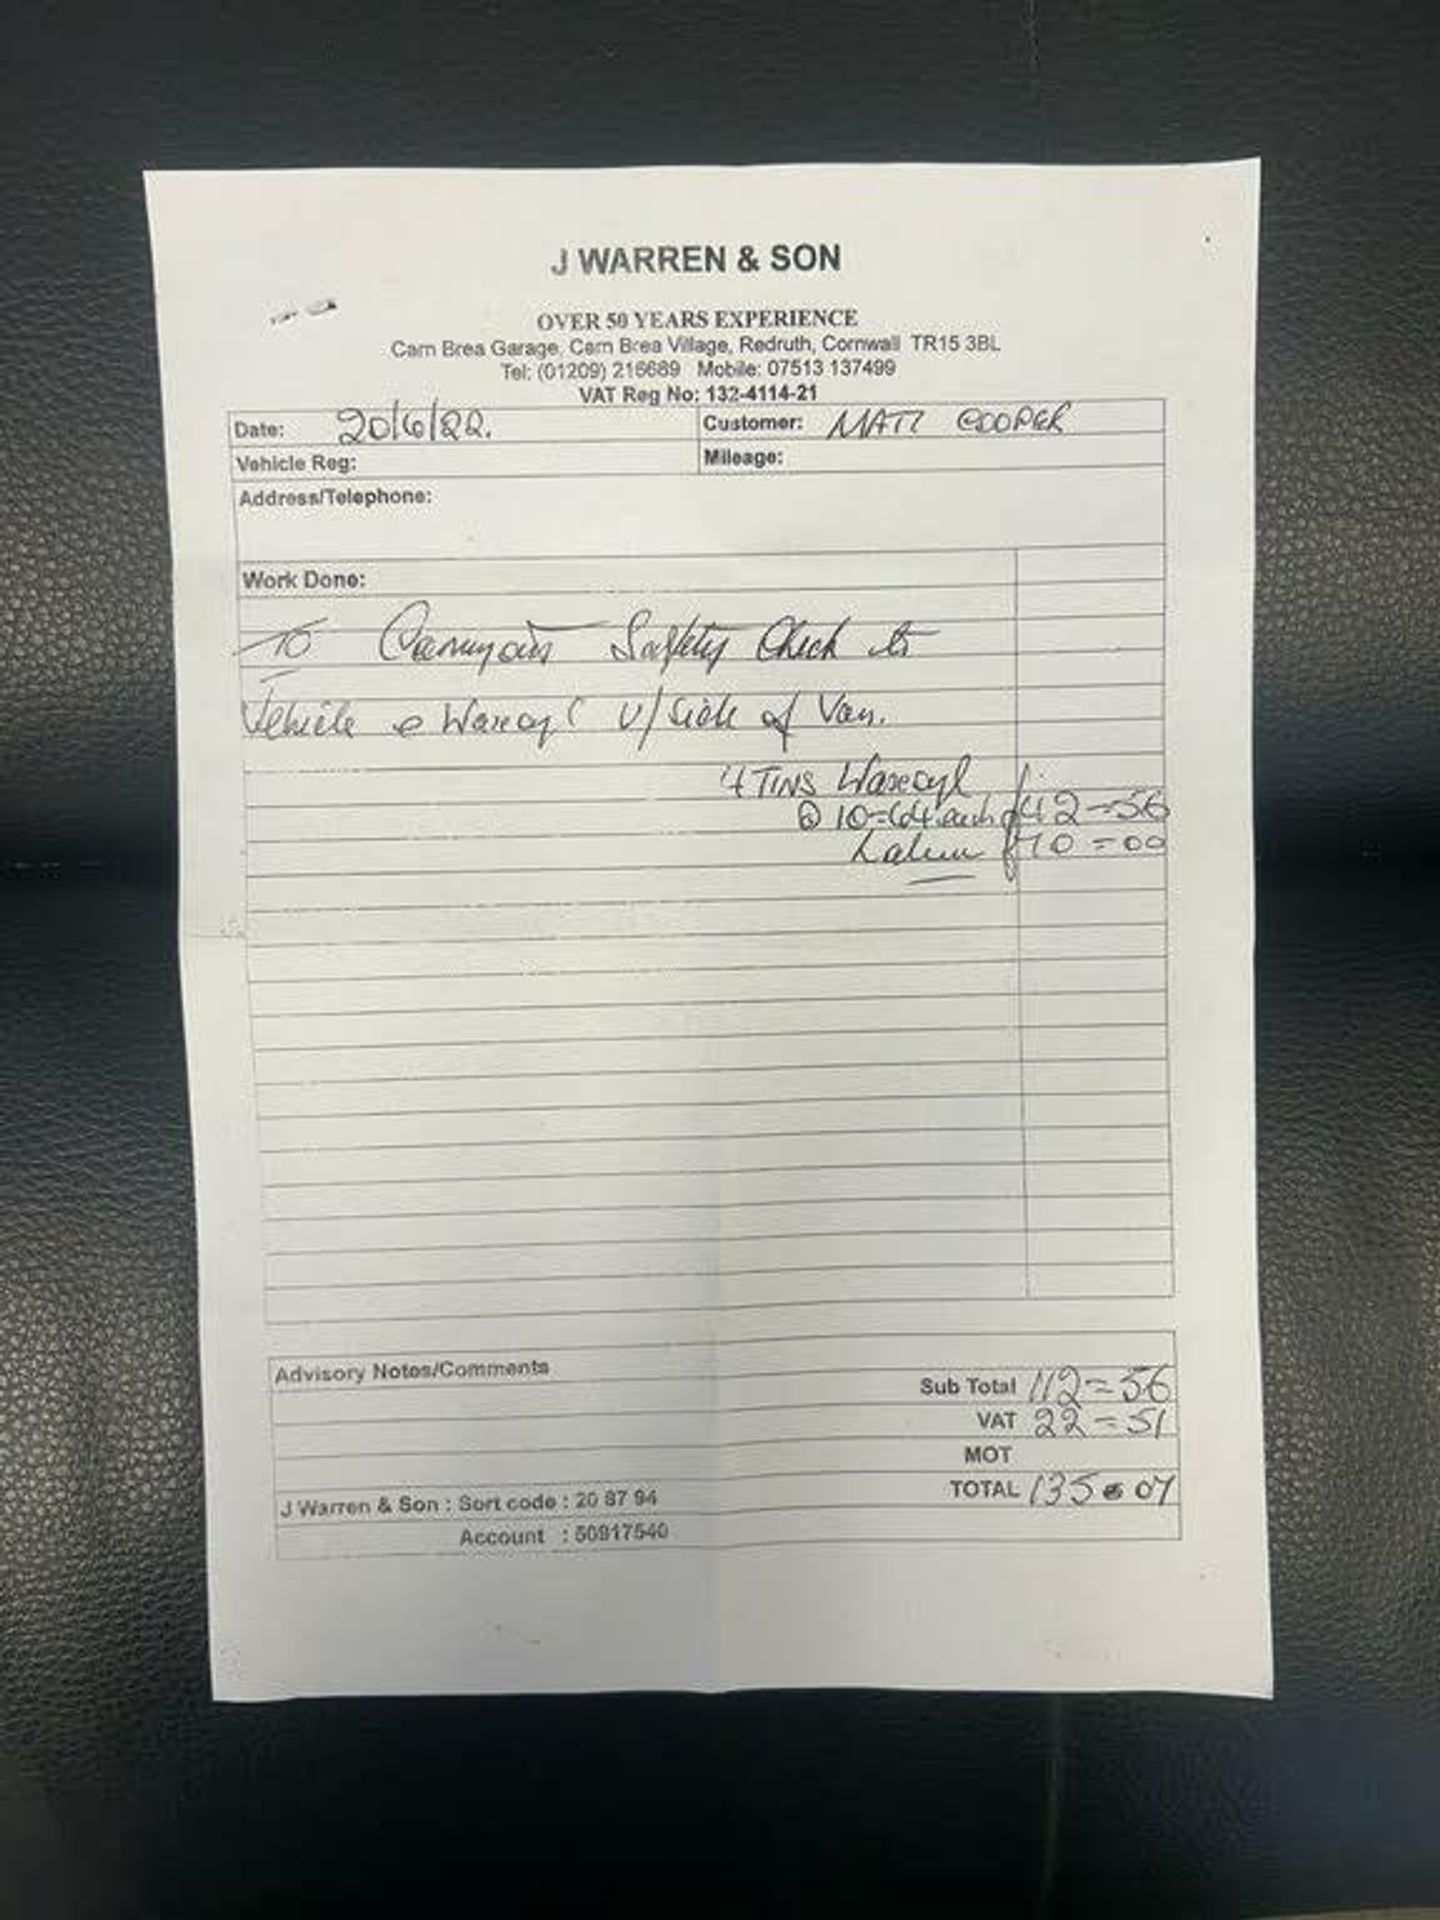 J WARREN & SON
OVER 50 YEARS EXPERIENCE
Carn Brea Garage, Carn Brea Village, Redruth, Cornwall TR15 3BL
Tel: (01209) 216689 Mobile: 07513 137499
VAT Reg No: 132-4114-21
Date: 20/6/22. Customer: MATT COOPER
Vehicle Reg: Mileage:
Address/Telephone:
Work Done:
To Carryout Safety Check to
Vehicle & Waxoyl U/Side of Van.
4 TINS Waxoyl
@ 10=64 each £42=56
Labour £70=00
Advisory Notes/Comments
Sub Total 112=56
VAT 22=51
MOT
TOTAL 135=07
J Warren & Son : Sort code : 20 87 94
Account : 50917540